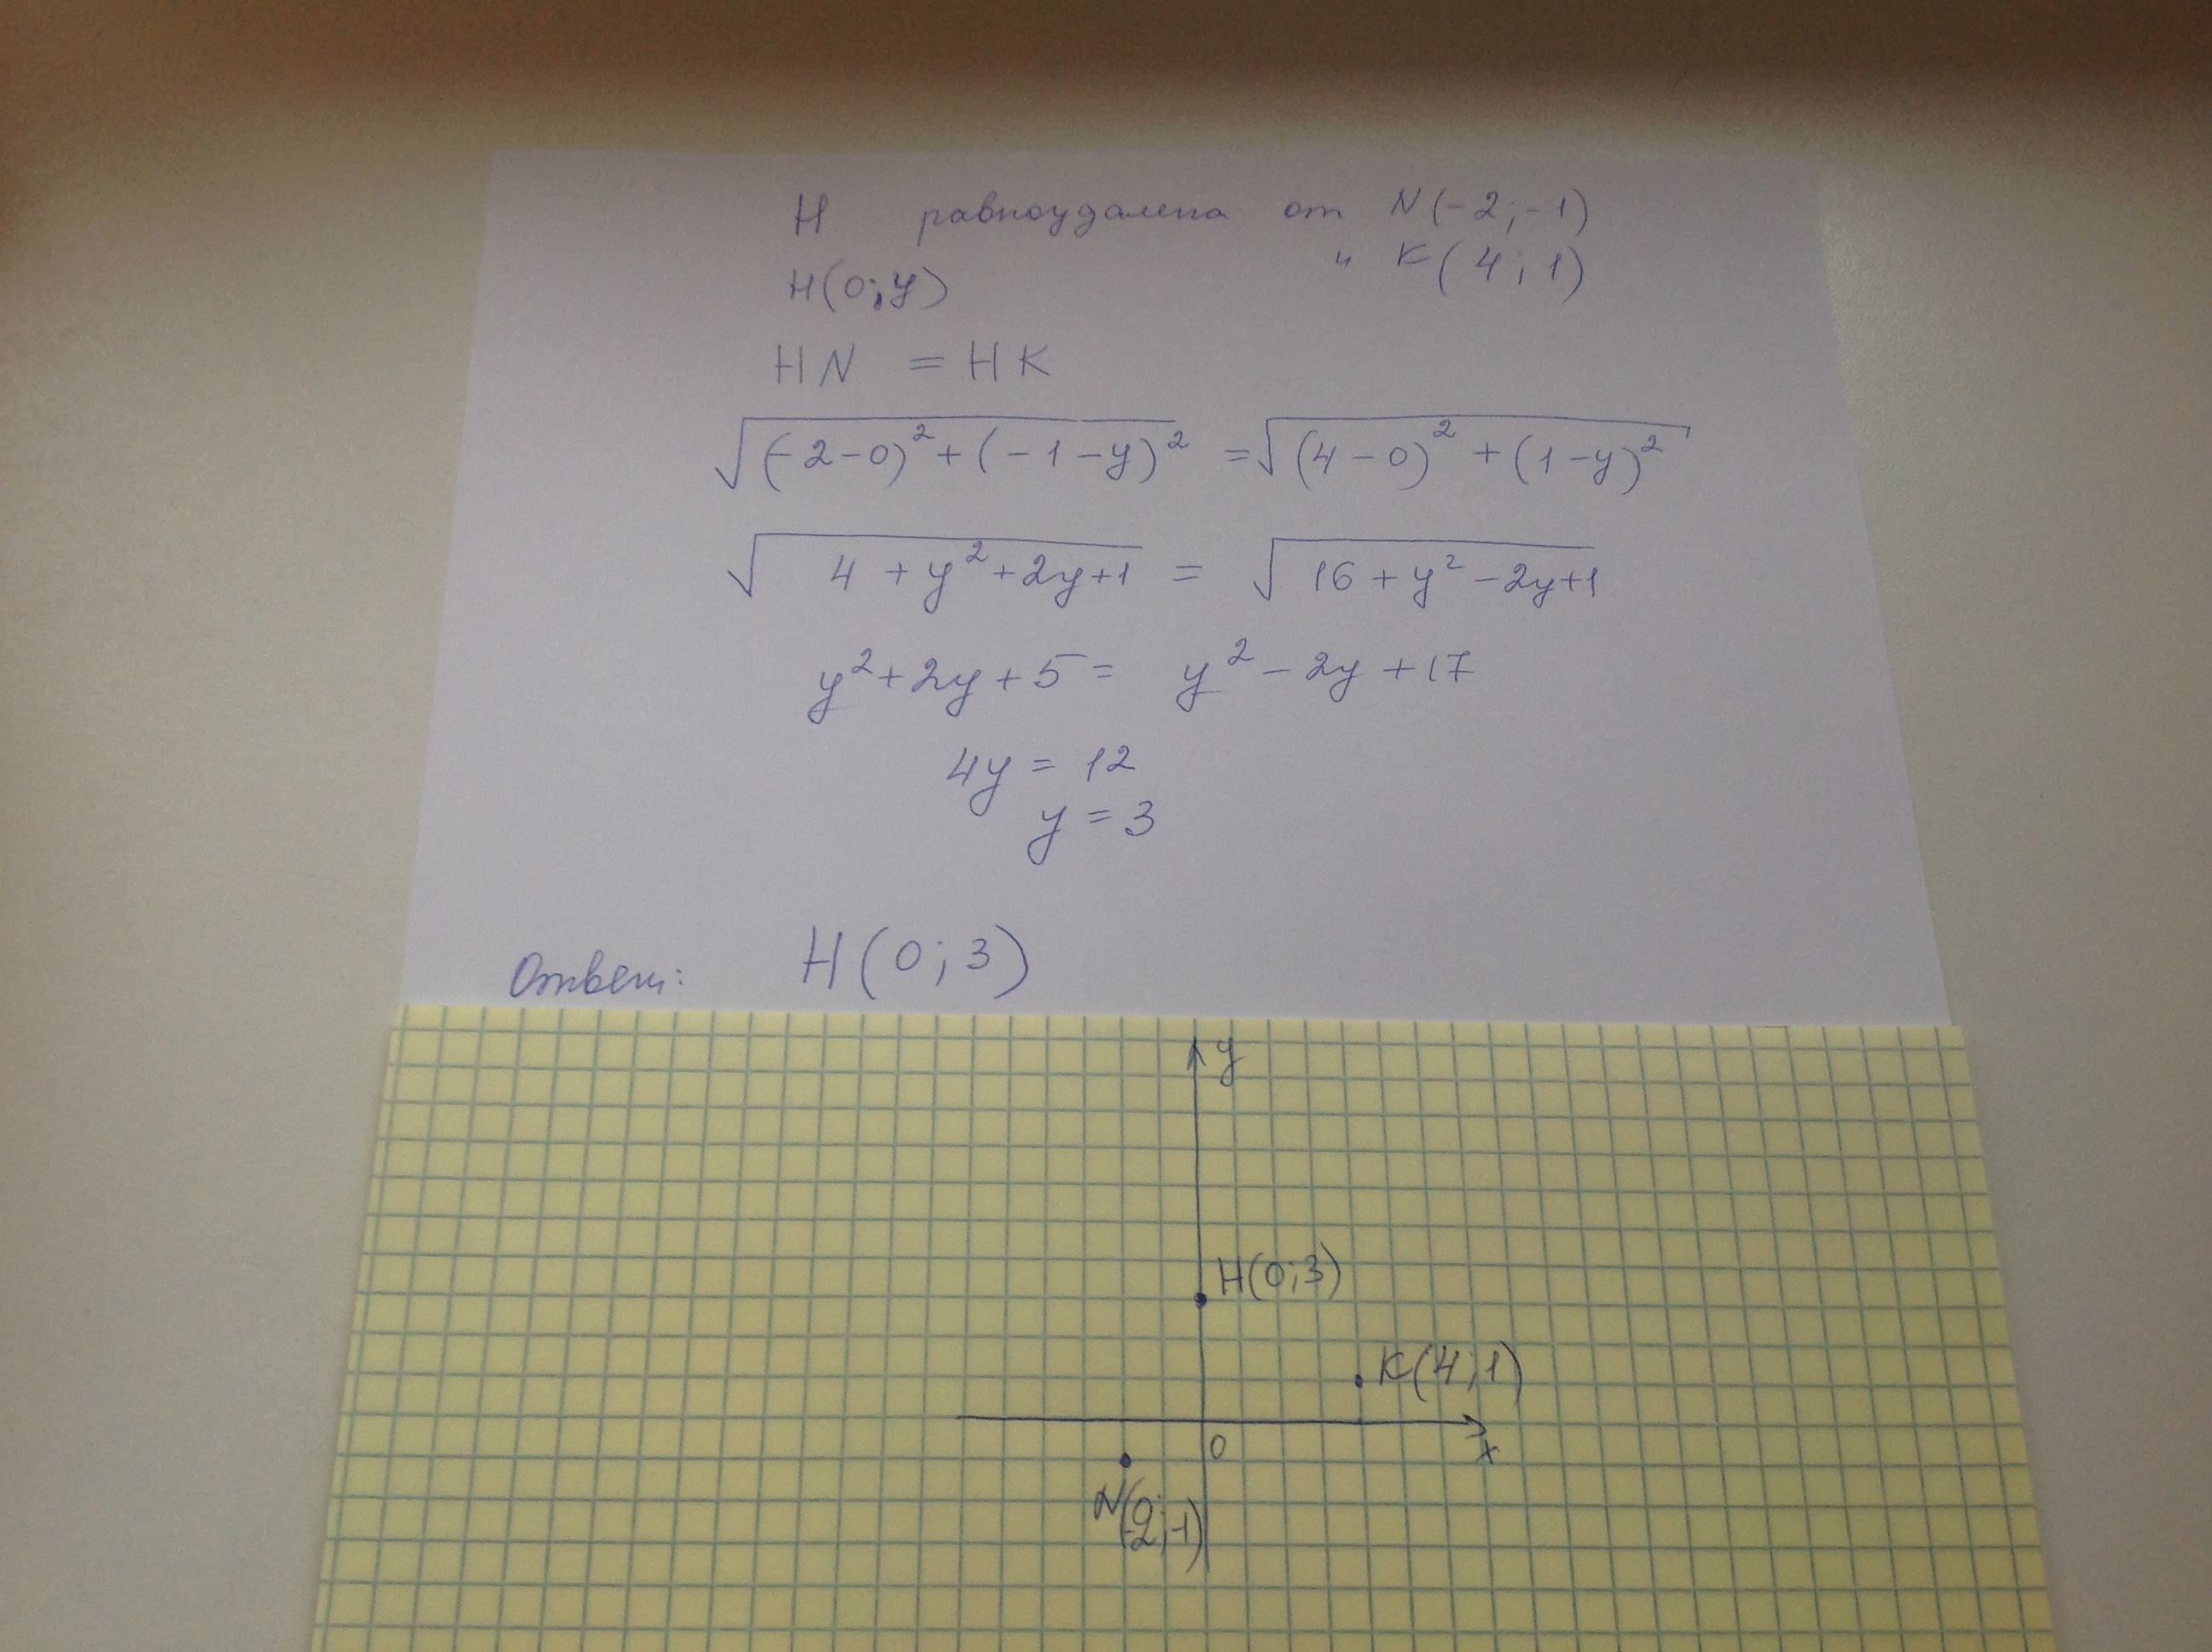 H равноудалена от N(-2;-1)
" K(4;1)
H(0;y)
HN = HK
√(-2-0)²+(-1-y)² = √(4-0)²+(1-y)²
√4+y²+2y+1 = √16+y²-2y+1
y²+2y+5 = y²-2y+17
4y = 12
y = 3
Ответ: H(0;3)
y
H(0;3)
K(4;1)
0
x
N(-2;-1)